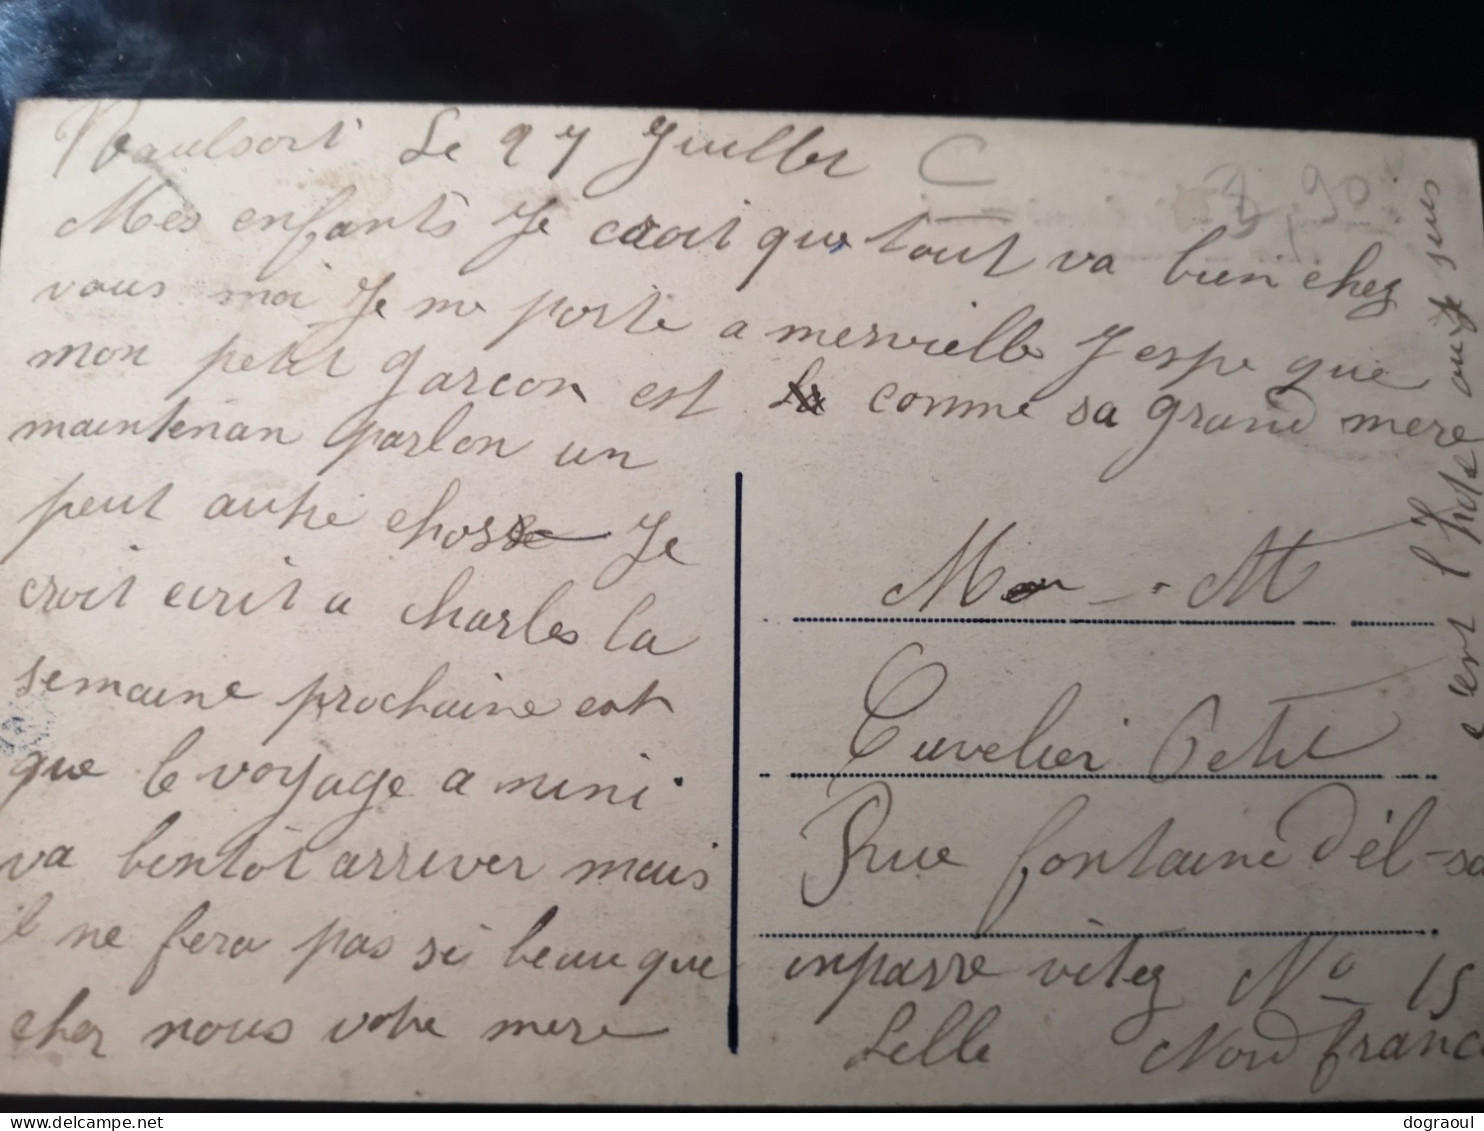 Le 27 Juillet C
2,90
Mes enfants Je croit que tout va bien chez
vous moi Je me porte a merveille J espe que
mon petit garcon est comme sa grand mere
maintenan parlon un
peut autre chosse Je
croit ecrit a charles la
semaine prochaine est
que le voyage a nini
va bentôt arriver mais
il ne fera pas si beau que
cher nous votre mere
M
Cuvelier Petit
Rue fontaine d'él-sa
inpasse vitez No 15
Lille Nord france
c'ent l'hote sues
dograoul